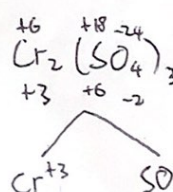 +6 +18 -24
Cr₂ (SO₄)₃
+3 +6 -2
Cr⁺³ SO